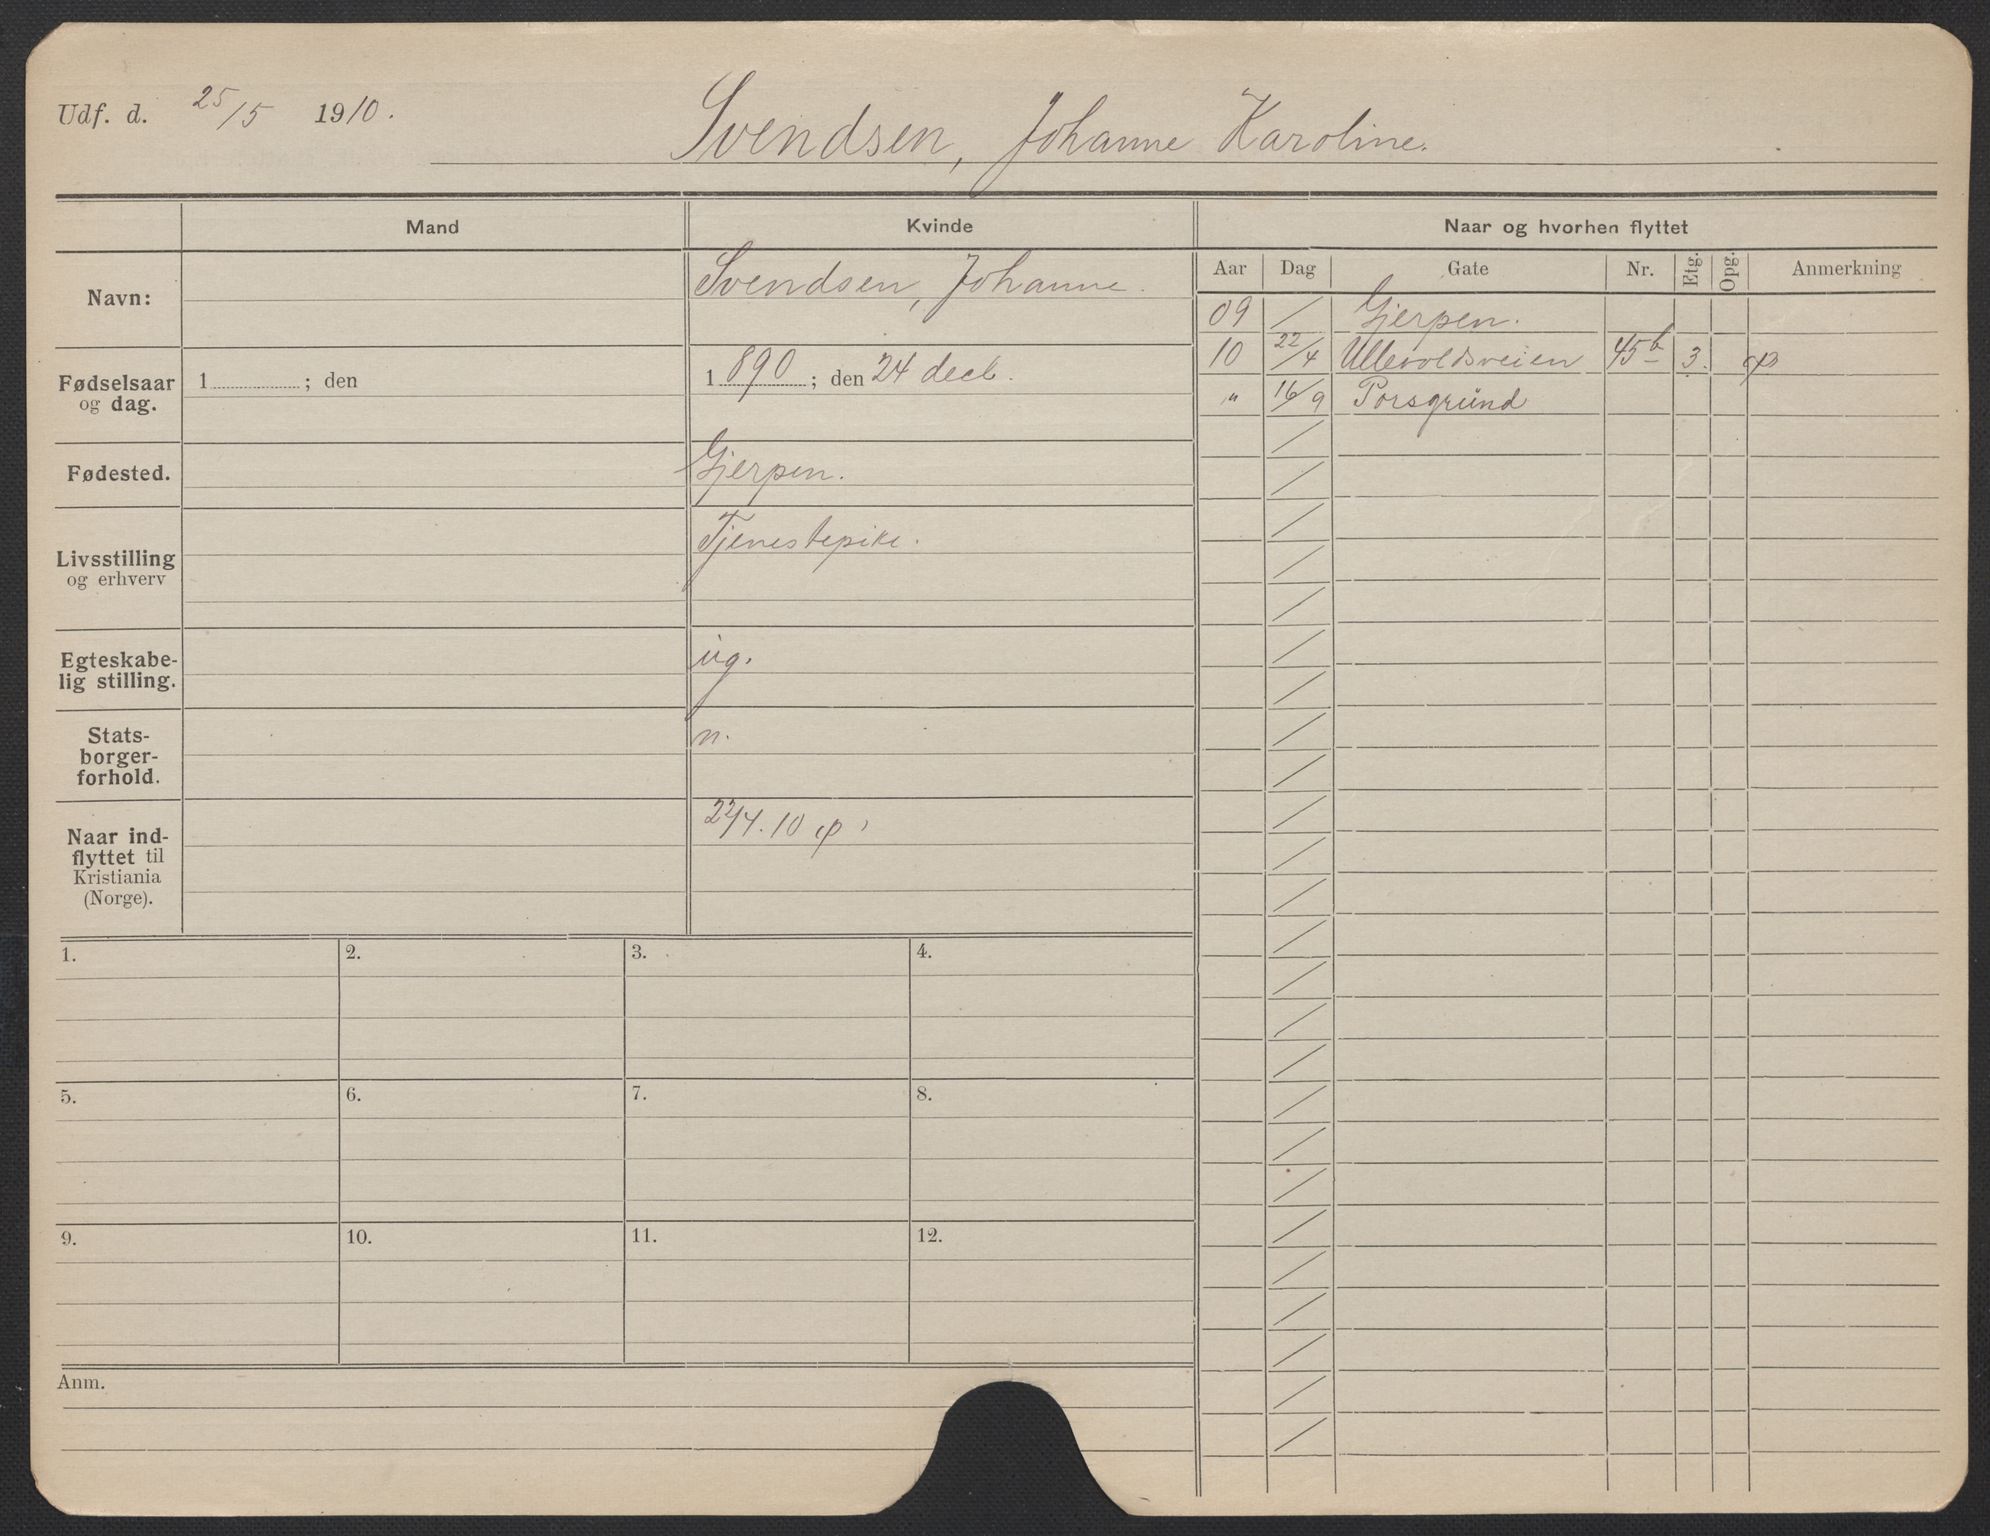 Udf. d. 25/5 1910.
Svendsen, Johanne Karoline.
Mand
Kvinde
Naar og hvorhen flyttet
Navn:
Svendsen, Johanne.
Aar Dag Gate Nr. Etg. Opg. Anmerkning
09 / Gjerpen.
10 22/4 Ullevoldsveien 45b 3.
" 16/9 Porsgrund
Fødselsaar
og dag.
1 ; den
1890 ; den 24 decb.
Fødested.
Gjerpen.
Livsstilling
og erhverv
Tjenestepike.
Egteskabe-
lig stilling.
ug.
Stats-
borger-
forhold.
n.
Naar ind-
flyttet til
Kristiania
(Norge).
22/4.10
1. 2. 3. 4.
5. 6. 7. 8.
9. 10. 11. 12.
Anm.